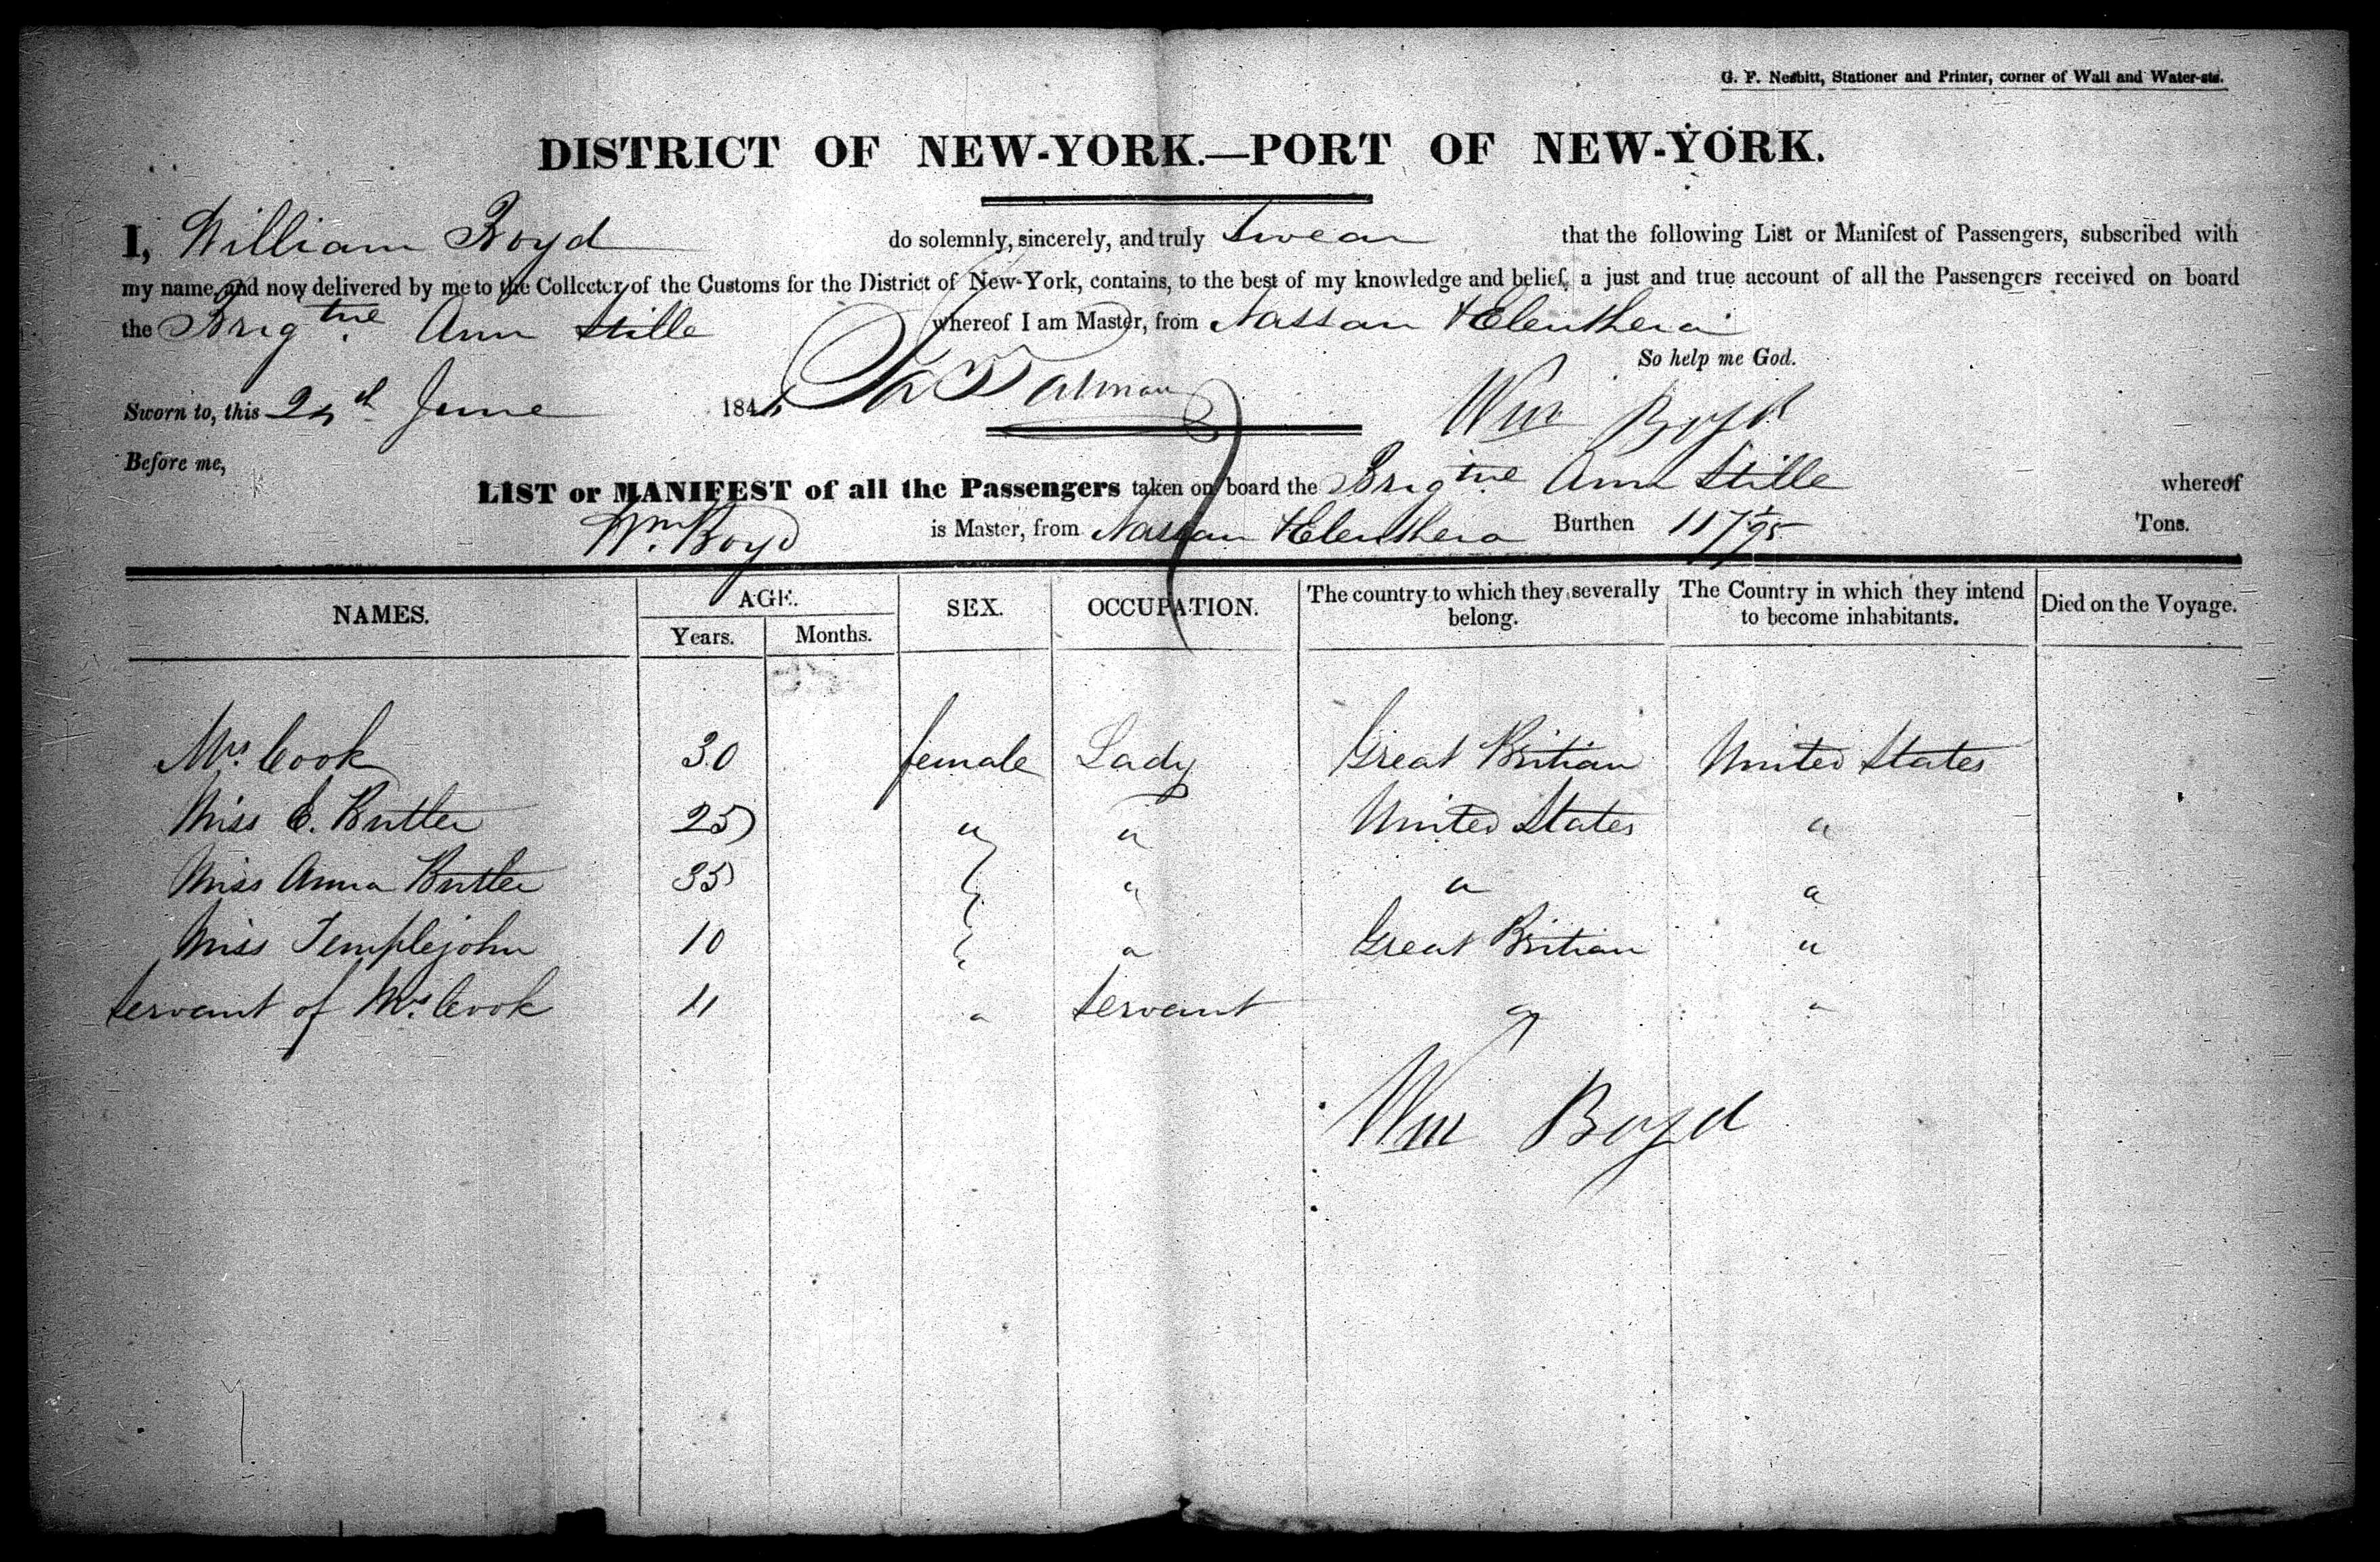 G. F. Nesbitt, Stationer and Printer, corner of Wall and Water-sts.
DISTRICT OF NEW-YORK.—PORT OF NEW-YORK.
I, William Boyd do solemnly, sincerely, and truly Swear that the following List or Manifest of Passengers, subscribed with
my name, and now delivered by me to the Collector of the Customs for the District of New-York, contains, to the best of my knowledge and belief, a just and true account of all the Passengers received on board
the Brigtne. Ann Stille whereof I am Master, from Nassau & Eleuthera
So help me God.
Sworn to, this June 184 Wm Boyd
Before me,
LIST or MANIFEST of all the Passengers taken on board the Brigtne. Ann Stille whereof
Wm. Boyd is Master, from Nassau & Eleuthera Burthen 117 Tons.
NAMES. AGE. SEX. OCCUPATION. The country to which they severally belong. The Country in which they intend to become inhabitants. Died on the Voyage.
Years. Months.
Mrs. Cook 30 female Lady Great Britian United States
Miss E. Butler 25 " " United States "
Miss Anna Butler 35 " " " "
Miss Templejohn 10 " " Great Britian "
Servant of Mrs. Cook 11 " Servant " "
Wm Boyd